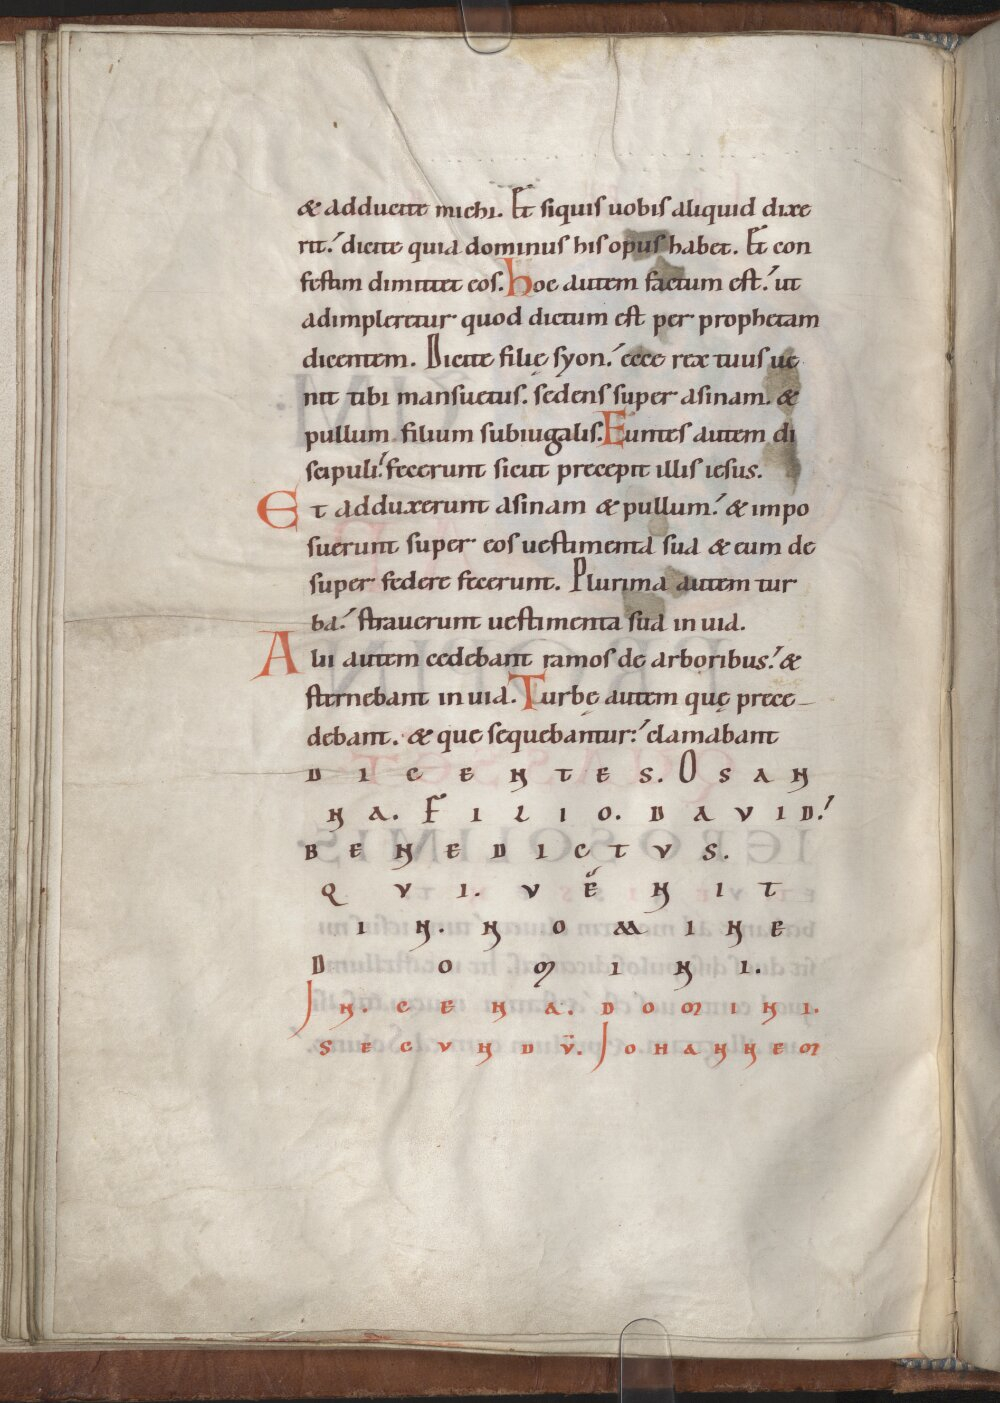 & adducite michi. Et siquis uobis aliquid dixe
rit. dicite quia dominus his opus habet. Et con
festim dimittet eos. hoc autem factum est. ut
adimpleretur quod dictum est per prophetam
dicentem. Dicite filię syon. ecce rex tuus ue
nit tibi mansuetus. sedens super asinam. &
pullum filium subiugalis. Euntes autem di
scipuli. fecerunt sicut precepit illis iesus.
Et adduxerunt asinam & pullum. & impo
suerunt super eos uestimenta sua & eum de
super sedere fecerunt. Plurima autem tur
ba. strauerunt uestimenta sua in uia.
Alii autem cedebant ramos de arboribus. &
sternebant in uia. Turbę autem quę prece
debant. & que sequebantur. clamabant
DICENTES. OSAN
NA. FILIO. DAVID.
BENEDICTVS.
QVI. VENIT
IN. NOMINE
DOMINI.
IN. CENA. DOMINI.
SECVNDV̄. IOHANNEM